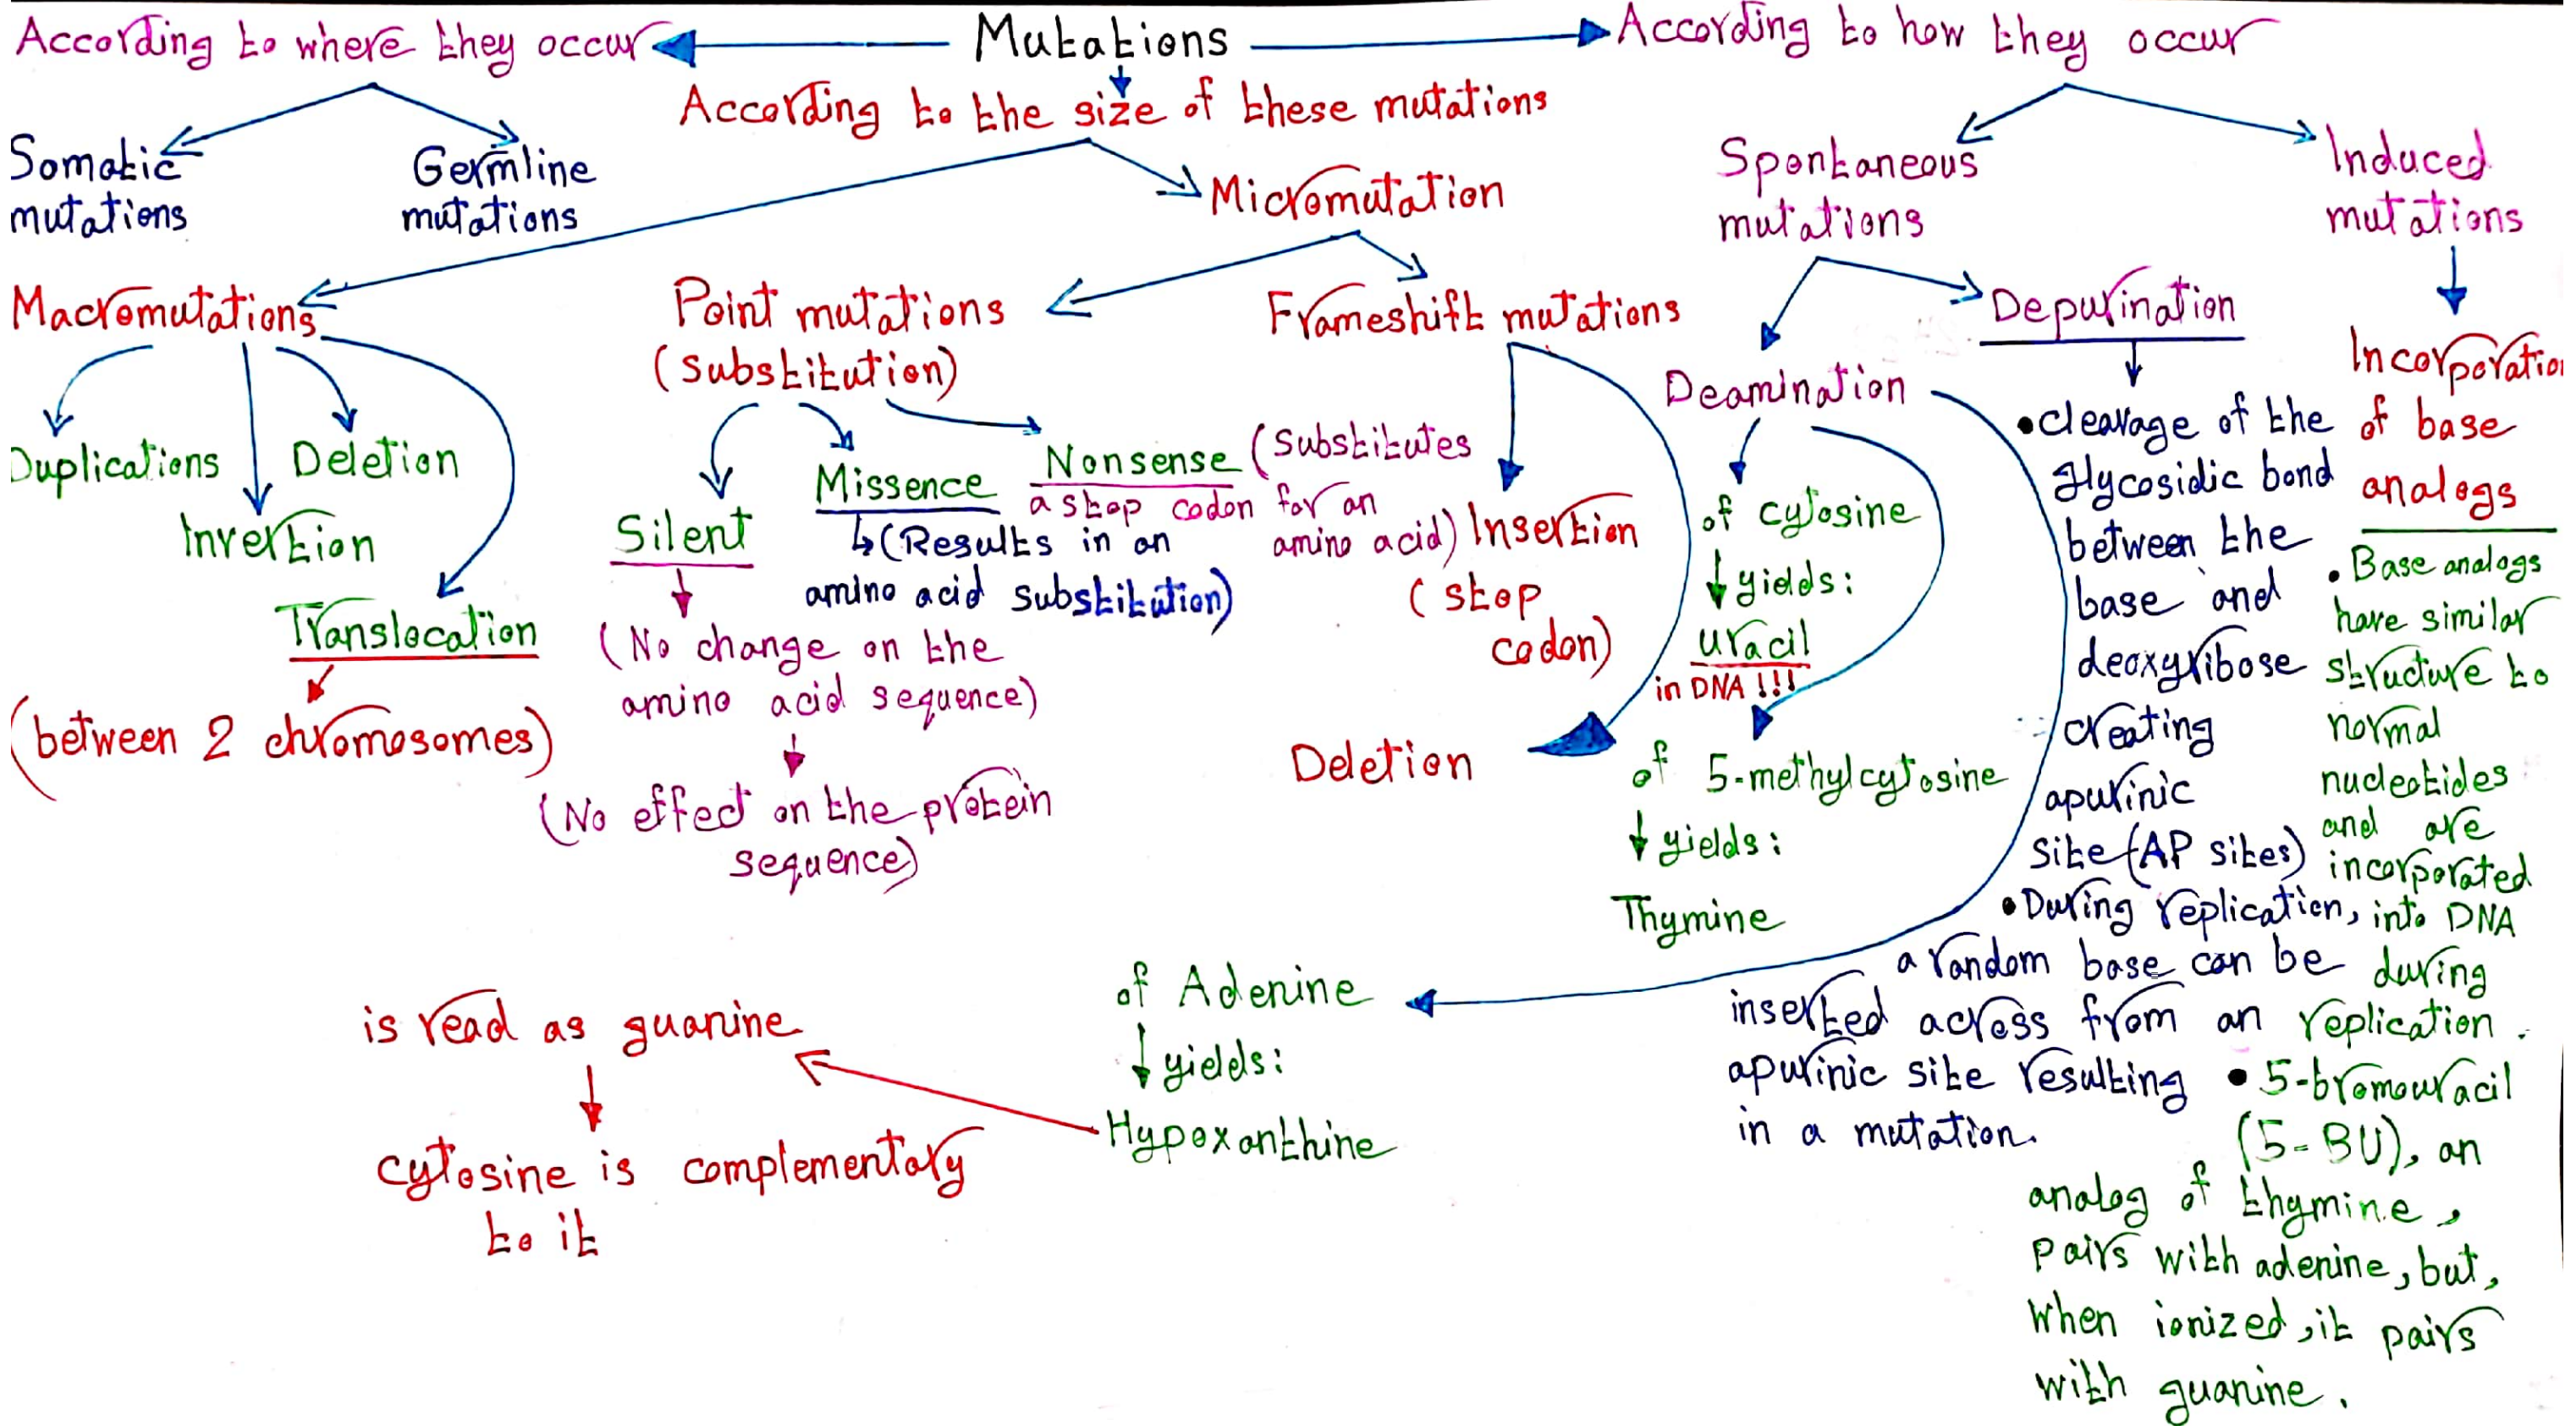 Mutations
According to where they occur
Somatic
mutations
Germline
mutations
According to the size of these mutations
Macromutations
Duplications
Invertion
Deletion
Translocation
(between 2 chromosomes)
Micromutation
Point mutations
(substitution)
Silent
(No change on the
amino acid sequence)
(No effect on the protein
sequence)
Missence
(Results in an
amino acid substitution)
Nonsense (Substitutes
a stop codon for an
amino acid)
Frameshift mutations
Insertion
(stop
codon)
Deletion
According to how they occur
Spontaneous
mutations
Deamination
of cytosine
yields:
uracil
in DNA !!!
of 5-methylcytosine
yields:
Thymine
of Adenine
yields:
Hypoxanthine
is read as guanine
cytosine is complementary
to it
Depurination
•cleavage of the
glycosidic bond
between the
base and
deoxyribose
creating
apurinic
site (AP sites)
•During replication,
a random base can be
inserted across from an
apurinic site resulting
in a mutation.
Induced
mutations
Incorporation
of base
analogs
•Base analogs
have similar
structure to
normal
nucleotides
and are
incorporated
into DNA
during
replication.
•5-bromouracil
(5-BU), an
analog of thymine,
pairs with adenine, but,
when ionized, it pairs
with guanine.